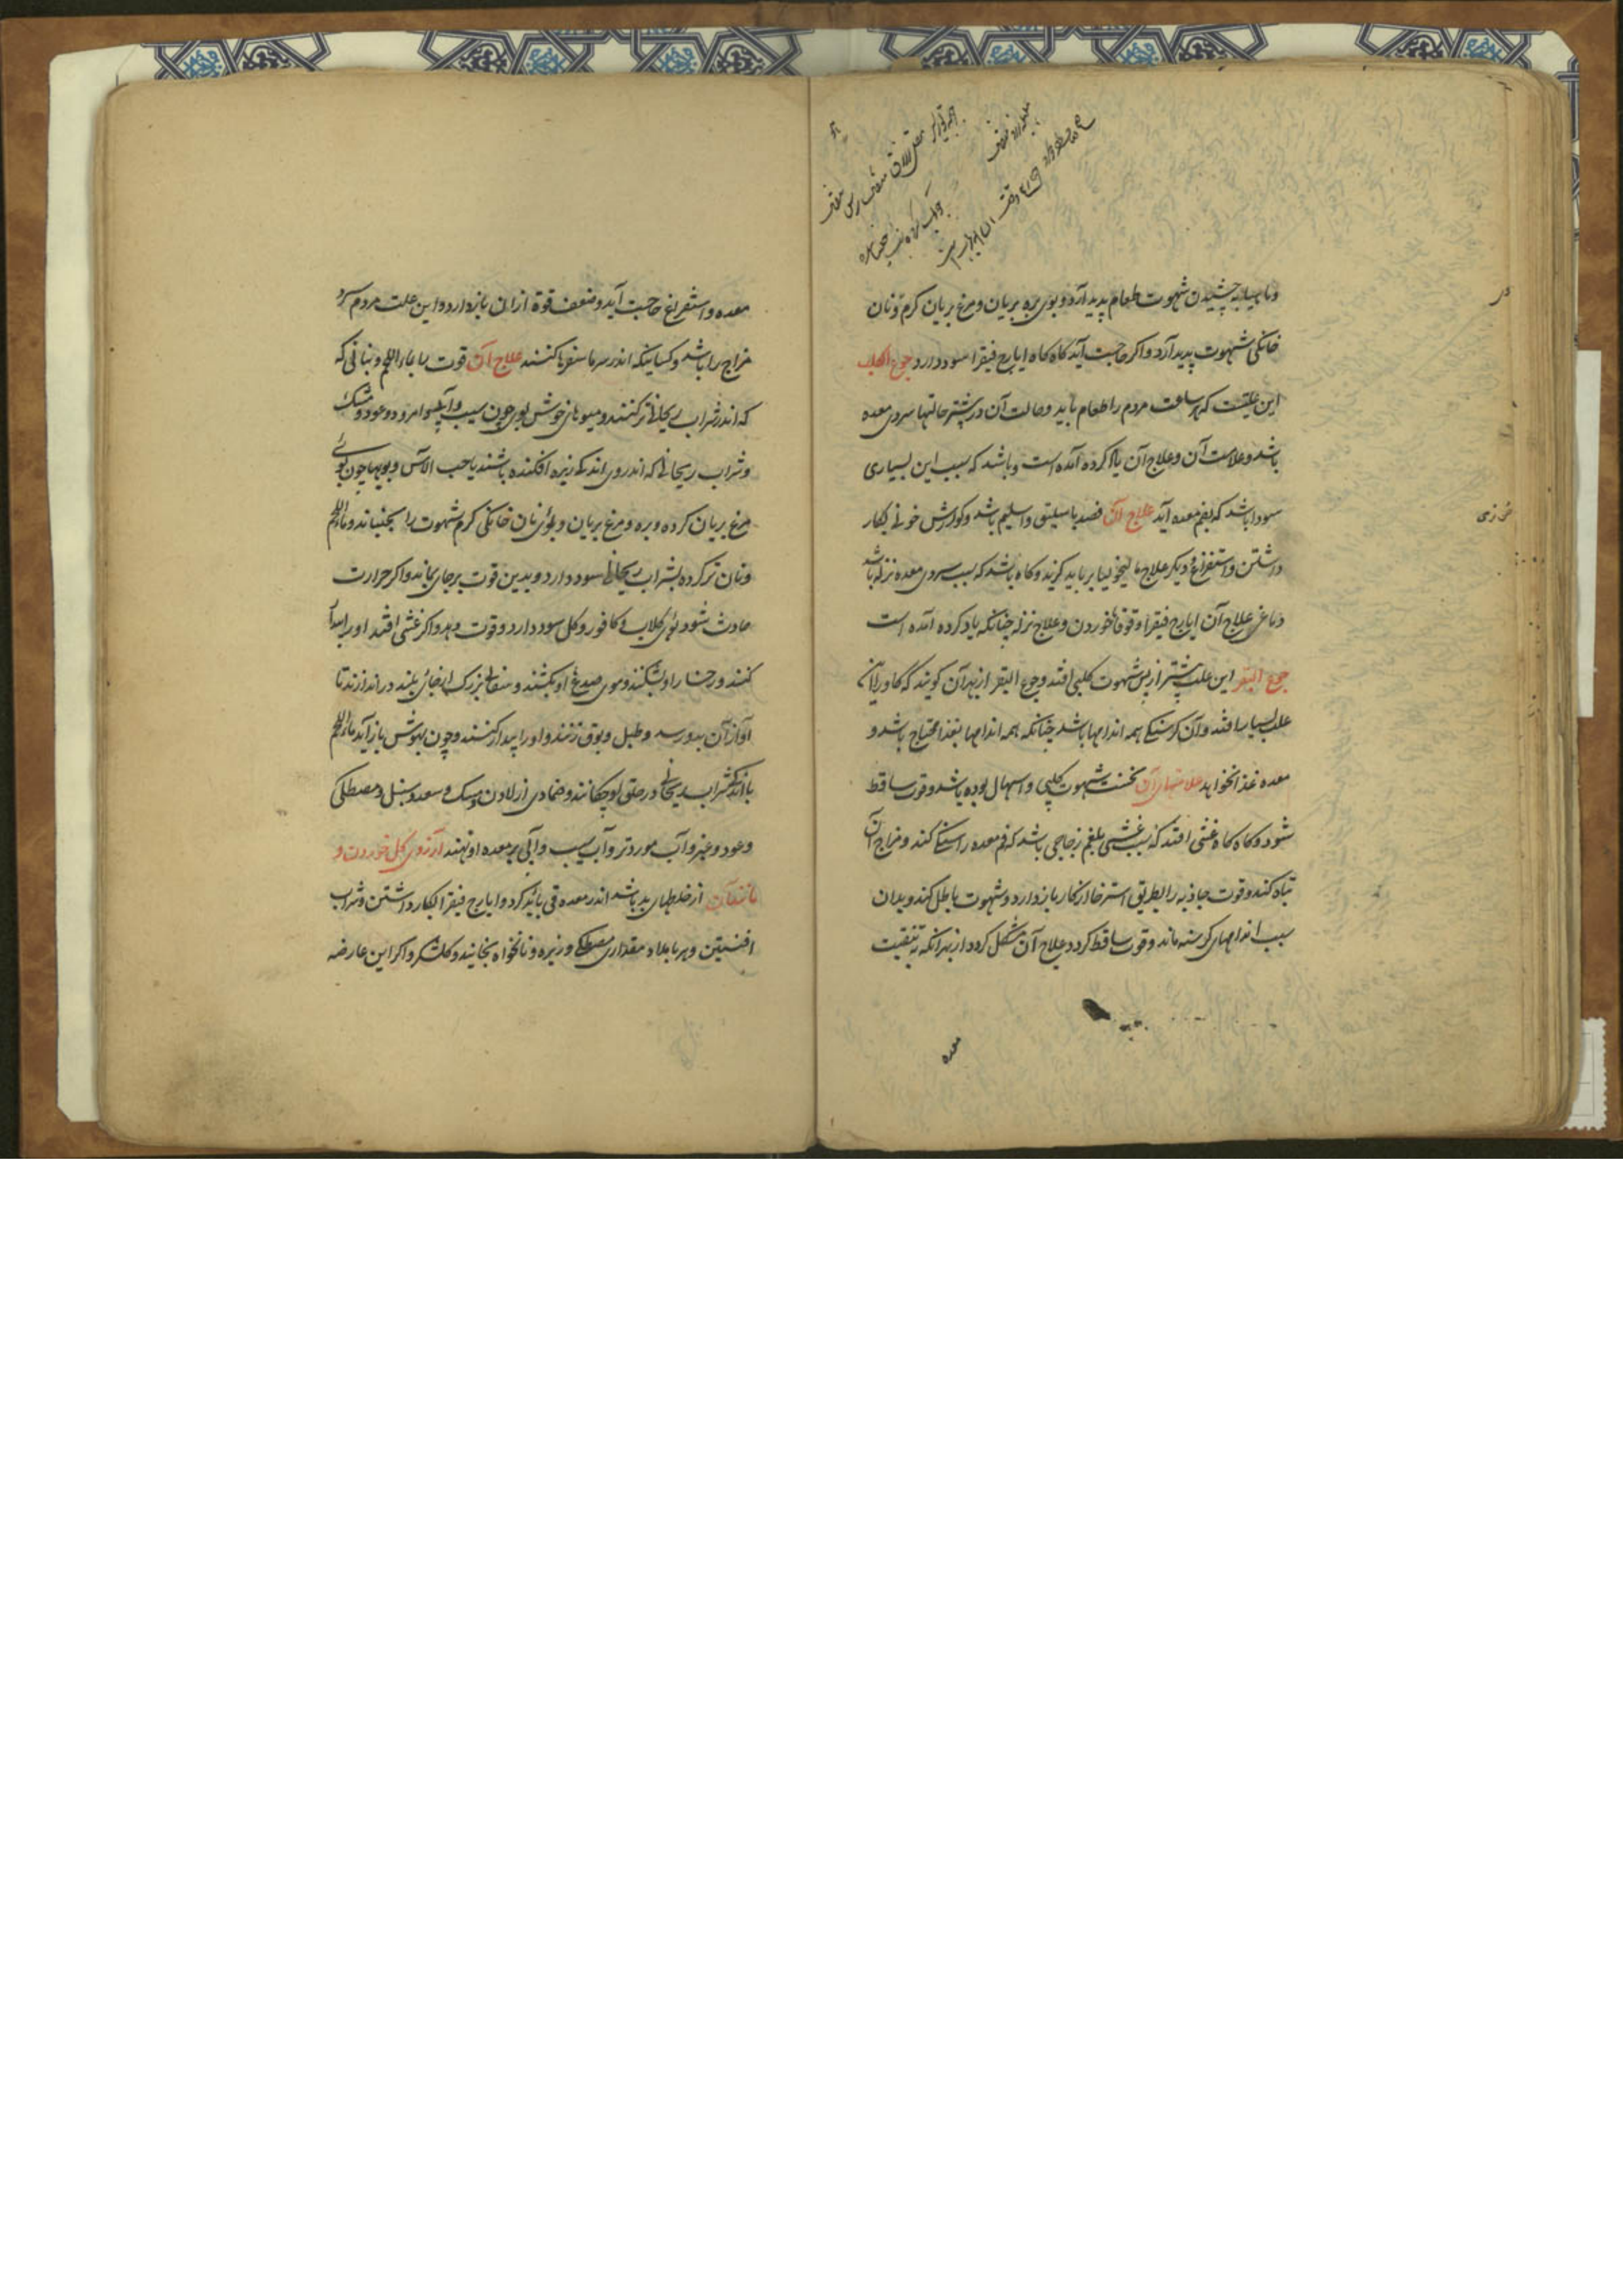 وماهیابه چشیدن شهوت طعام پدید آرد و بوی بره بریان و مرغ بریان کرم و نان
خانکی شهوت پدید آرد و اکر حاجت آید کاه کاه ایارج فیقرا سود دارد جوع الکلب
این علتیست که هر ساعت مردم را طعام باید و حالت آن در بیشتر حالتها سردی معده
باشد و علامت آن و علاج آن یاد کرده آمده است و باشد که سبب این بسیاری
سودا باشد که بفم معده آید علاج آن فصد باسلیق و اسلیم باشد و کوارش خوزی بکار
داشتن و استفراغ و دیکر علاج مالیخولیا بر باید کزید و کاه باشد که سبب سردی معده نزله باشد
دماغی علاج آن ایارج فیقرا و قوقایا خوردن و علاج نزله چنانکه یاد کرده آمده است
جوع البقر این علت بیشتر از پس شهوت کلبی افتد و جوع البقر از بهر آن کویند که کاو را این
علت بسیار افتد و آن کرسنکی همه اندامها باشد چنانکه همه اندامها بغذا محتاج باشد و
معده غذا نخواهد علامتهای آن نخست شهوت کلبی و اسهال بوده باشد و قوت ساقط
شود و کاه کاه غشی افتد که سبب غشی بلغم زجاجی باشد که فم معده را کند و مزاج آن
تباه کند و قوت جاذبه را بطریق استرخا از کار باز دارد و شهوت باطل کند و بدان
سبب اندامهای کرسنه ماند و قوت ساقط کردد و علاج آن مشکل کردد از بهر آنکه به تنقیت
معده
معده و استفراغ حاجت آید و ضعف قوة از ان باز دارد و این علت مردم سرد
مزاج را باشد و کسانیکه اندر سرما سفرها کنند علاج آن قوت را بماء اللحم و بنانی که
که اندر شراب ریحانی تر کنند و میوهای خوش بوی چون سیب و آبی و امرود و عود و مشک
و شراب ریحانی که اندر وی اندکی زیره افکنده باشند یا حب الآس و بویها چون بوی
مرغ بریان کرده و بره و مرغ بریان و بوی نان خانکی کرم شهوت را بجنباند و ماء اللحم
و نان تر کرده بشراب ریحانی سود دارد و بدین قوت بر جای بماند و اکر حرارت
حادث شود بوی کلاب و کافور و کل سود دارد و قوت دهد و اکر غشی افتد او را بیدار
کنند و رخسار او بشکنند و موی صدغ او بکشند و سفالی بزرک از جای بلند در اندازند تا
آواز آن بدو رسد و طبل و بوق زنند و او را بیدار کنند و چون بهوش باز آید ماء اللحم
با اندکی شراب ریحانی در حلق او چکانند و ضمادی از لادن و مسک و سعد و سنبل و مصطکی
و عود و عنبر و آب مورد تر و آب سیب و آبی بر معده او نهند آرزوی کل خوردن و
مانند آن از خلطهای بد باشد اندر معده قی باید کرد و ایارج فیقرا بکار داشتن و شراب
افسنتین و هر بامداد مقداری مصطکی و زیره و نانخواه بخایند و کلشکر و اکر این عارضه